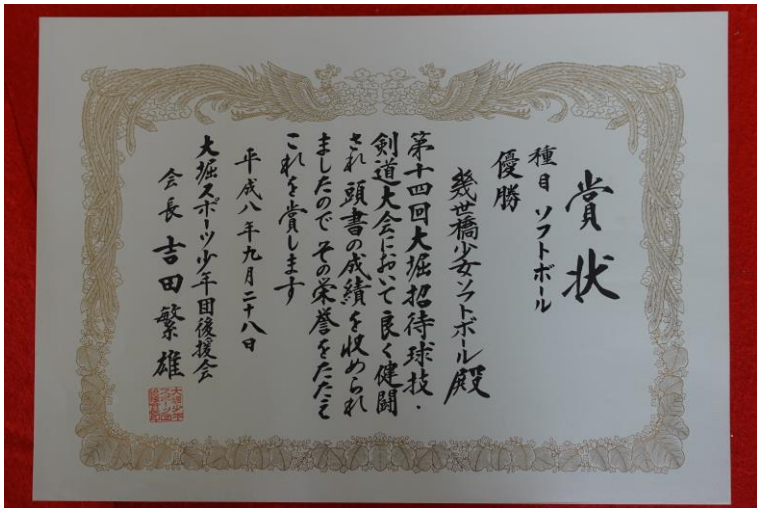 賞状
種目 ソフトボール
優勝
幾世橋少女ソフトボール殿
第十四回大堀招待球技・
剣道大会において良く健闘
され頭書の成績を收められ
ましたのでその栄誉をたたえ
これを賞します
平成八年九月二十八日
大堀スポーツ少年団後援会
会長 吉田繁雄